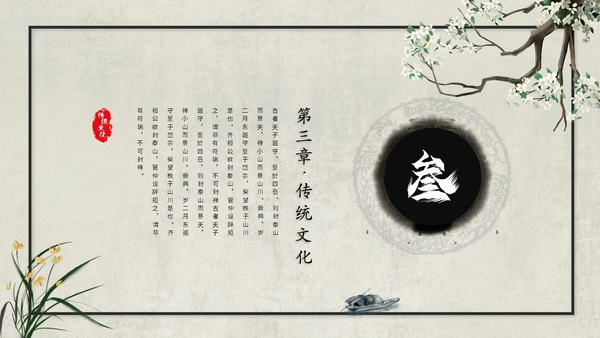 叁
第三章·传统文化
古者天子巡守，至於四岳，则封泰山
而祭天，禅小山而祭山川。舜典，岁
二月东巡守至于岱宗，柴望秩于山川
是也。齐桓公欲封泰山，管仲设辞拒
之，谓非有符瑞，不可封禅古者天子
巡守，至於四岳，则封泰山而祭天，
禅小山而祭山川。舜典，岁二月东巡
守至于岱宗，柴望秩于山川是也。齐
桓公欲封泰山，管仲设辞拒之，谓非
有符瑞，不可封禅。
传统
文化